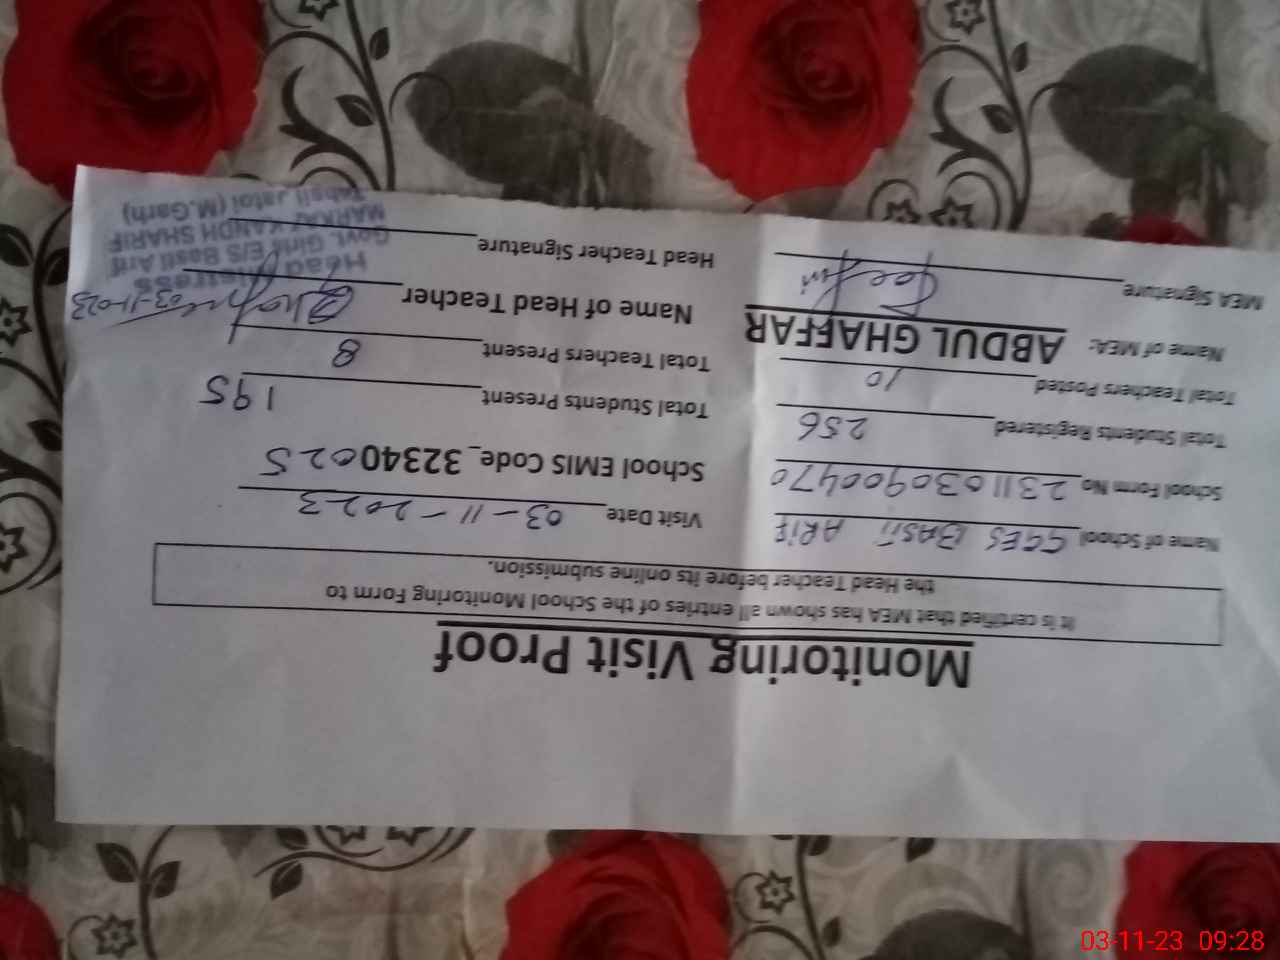 Monitoring Visit Proof
It is certified that MEA has shown all entries of the School Monitoring Form to
the Head Teacher before its online submission.
Name of School GGES BASTI ARIF Visit Date 03-11-2023
School Form No 2311030900470 School EMIS Code_ 32340025
Total Students Registered 256 Total Students Present 195
Total Teachers Posted 10 Total Teachers Present 8
Name of MEA: ABDUL GHAFFAR Name of Head Teacher 03-11-023
MEA Signature Head Teacher Signature
Head Mistress
Govt. Girls E/S Basti Arif
KANDH SHARIF
Tehsil Jatoi (M.Garh)
03-11-23 09:28